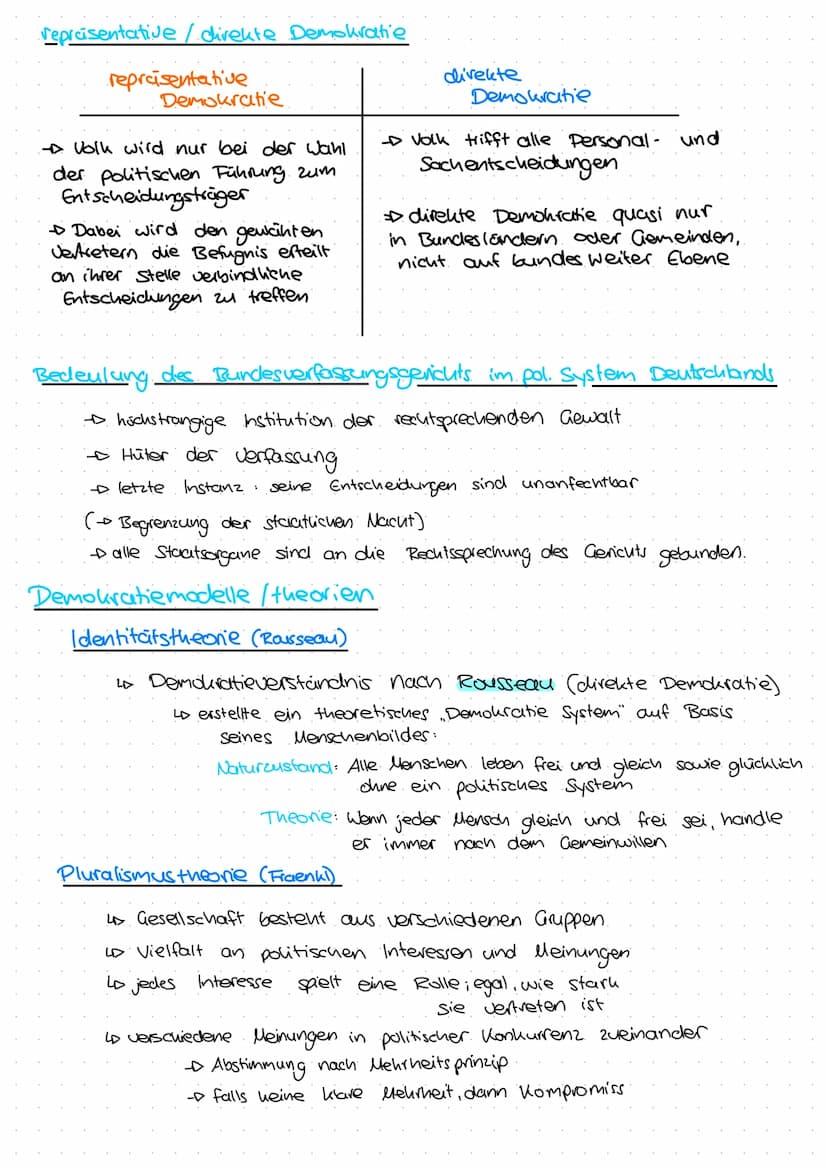 repräsentative / direkte Demokratie
repräsentative
Demokratie
→ Volk wird nur bei der Wahl
der politischen Führung zum
Entscheidungsträger
→ Dabei wird den gewählten
Vertretern die Befugnis erteilt
an ihrer Stelle verbindliche
Entscheidungen zu treffen
direkte
Demokratie
→ Volk trifft alle Personal- und
Sachentscheidungen
⇒ direkte Demokratie quasi nur
in Bundesländern oder Gemeinden,
nicht auf bundesweiter Ebene
Bedeutung des Bundesverfassungsgerichts im pol. System Deutschlands
→ höchstrangige Institution der rechtsprechenden Gewalt
→ Hüter der Verfassung
→ letzte Instanz : seine Entscheidungen sind unanfechtbar
(→ Begrenzung der staatlichen Macht)
→ alle Staatsorgane sind an die Rechtssprechung des Gerichts gebunden.
Demokratiemodelle / theorien
Identitätstheorie (Rousseau)
↳ Demokratieverständnis nach Rousseau (direkte Demokratie)
↳ erstellte ein theoretisches „Demokratie System" auf Basis
seines Menschenbildes:
Naturzustand: Alle Menschen leben frei und gleich sowie glücklich
ohne ein politisches System
Theorie: Wenn jeder Mensch gleich und frei sei, handle
er immer nach dem Gemeinwillen
Pluralismustheorie (Fraenkl)
↳ Gesellschaft besteht aus verschiedenen Gruppen
↳ Vielfalt an politischen Interessen und Meinungen
↳ jedes Interesse spielt eine Rolle; egal, wie stark
sie vertreten ist
↳ verschiedene Meinungen in politischer Konkurrenz zueinander
→ Abstimmung nach Mehrheitsprinzip
→ falls keine klare Mehrheit, dann Kompromiss